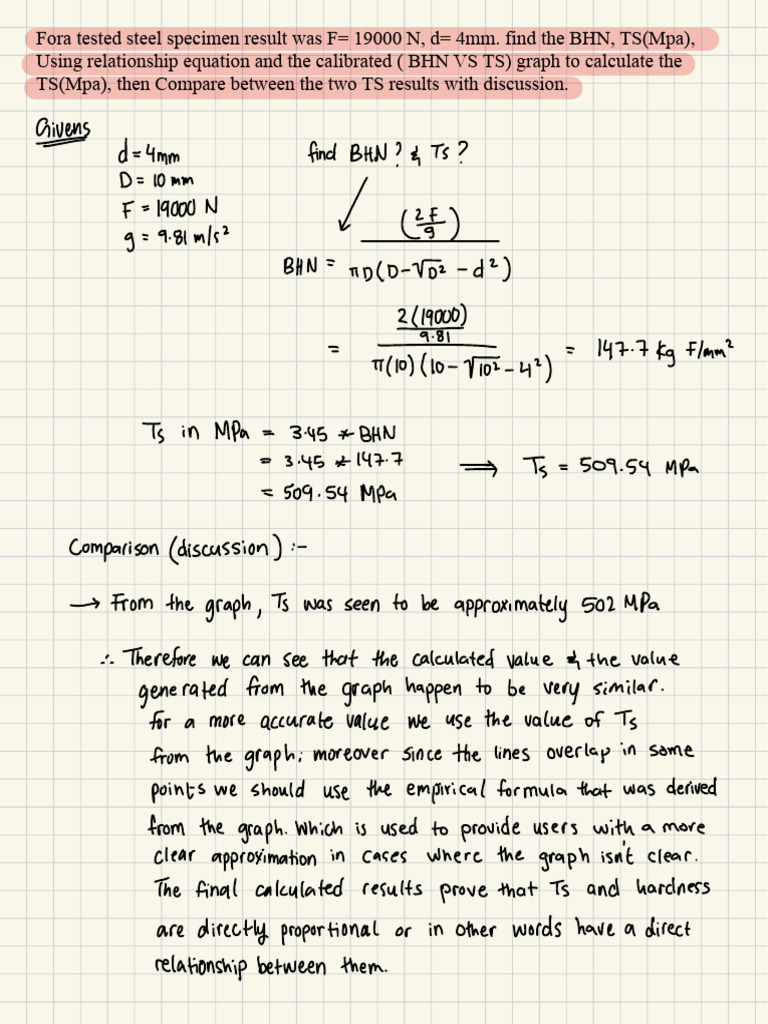 Fora tested steel specimen result was F= 19000 N, d= 4mm. find the BHN, TS(Mpa),
Using relationship equation and the calibrated ( BHN VS TS) graph to calculate the
TS(Mpa), then Compare between the two TS results with discussion.
Givens
d = 4mm
D = 10 mm
F = 19000 N
g = 9.81 m/s²
find BHN? & Ts?
BHN = (2F/g) / πD(D-√D² - d²)
= 2(19000)/9.81 / π(10)(10-√10² - 4²) = 147.7 kg F/mm²
Ts in MPa = 3.45 * BHN
= 3.45 * 147.7 ⟹ Ts = 509.54 MPa
= 509.54 MPa
Comparison (discussion) :-
→ From the graph, Ts was seen to be approximately 502 MPa
∴ Therefore we can see that the calculated value & the value
generated from the graph happen to be very similar.
for a more accurate value we use the value of Ts
from the graph; moreover since the lines overlap in some
points we should use the empirical formula that was derived
from the graph. Which is used to provide users with a more
clear approximation in cases where the graph isn't clear.
The final calculated results prove that Ts and hardness
are directly proportional or in other words have a direct
relationship between them.